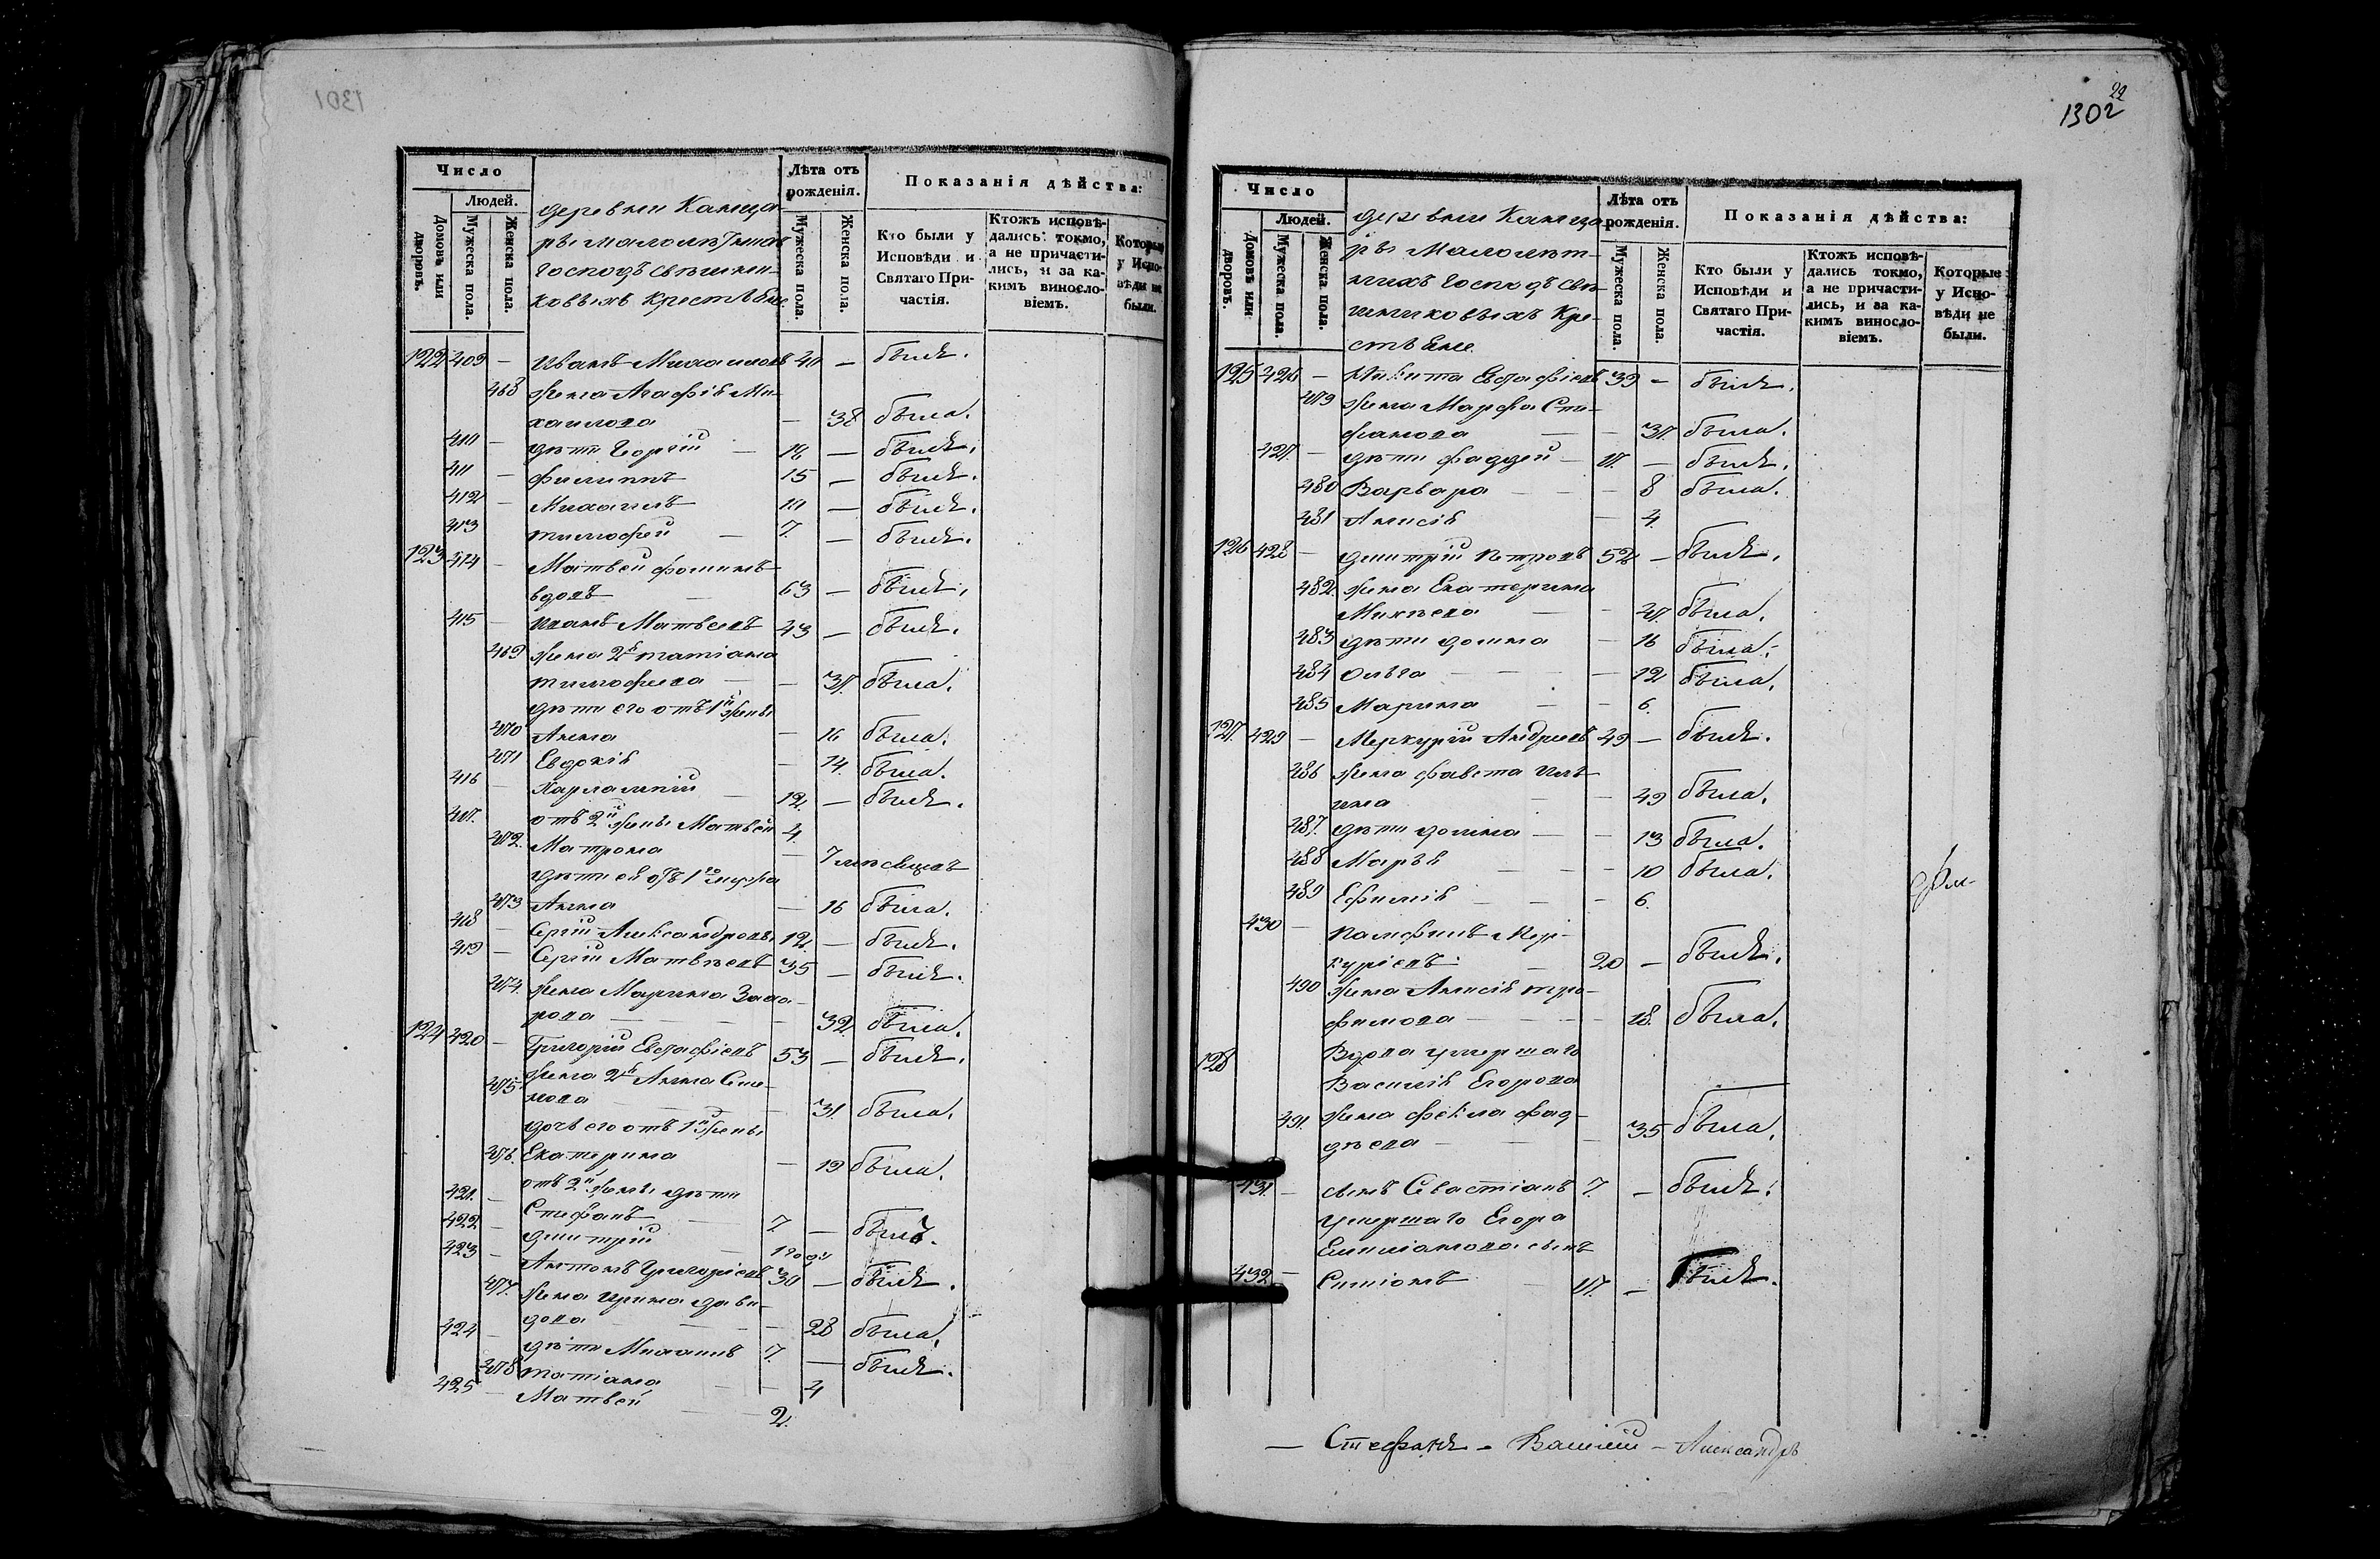 1301
Число
Людей.
Домовъ или дворовъ.
Мужеска пола.
Женска пола.
деревни Канца-
ры малолѣтныхъ
господъ
ковыхъ крестьяне
Лѣта отъ рожденія.
Мужеска пола.
Женска пола.
Показанія дѣйства:
Кто были у Исповѣди и Святаго Причастія.
Ктожъ исповѣдались токмо, а не причастились, и за какимъ винословіемъ.
Которые у Исповѣди не были.
122 409 — Иванъ Михаиловъ 40 — былъ.
468 жена Агафія Ми-
хаилова — 38 была.
410 — дѣти Георгій — 18 — былъ.
411 — Филиппъ 15 — былъ.
412 — Михаилъ 10 — былъ.
413 тимофей — 7. — былъ.
123 414 — Матвей Фоминъ
вдовъ — 63 — былъ,
415 — Иванъ Матвеевъ 43 — былъ.
469 жена 2я татіана
тимофеева — — 37. была.
дѣти его отъ 1й жены
470 Анна — 16 была.
471 Евдокія — 14. была.
416 — Харлампій — 12. — былъ.
417. отъ 2й жены Матвей 4.
472. Матрона — 7 мѣсяцовъ
дѣти ея отъ 1го мужа
473 Анна — 16 была.
418 — Сергій Александровъ 12. — былъ.
419 — Сергій Матвѣевъ 35 — былъ.
474. жена Марина Заха-
рова — — — 32. была.
124 420 — Григорій Евстафіевъ 53 — былъ.
475. жена 2я Анна Семе-
нова — — — 31. была.
дочь его отъ 1й жены
476. Екатерина — 19 была.
отъ 2й жены дѣти
421. — Стефанъ — 7 — былъ.
422 — Дмитрій — 1 годъ
423 — Антонъ Григоріевъ 30 — былъ.
477. жена Ирина Дави-
дова — — — 28 была.
424 — дѣти Михаилъ 7. — былъ.
478 татіана — — 4
425 — Матвей — — 2.
22
1302
Число
Людей.
Домовъ или дворовъ.
Мужеска пола.
Женска пола.
деревни Канца-
ры Малолѣт-
ныхъ господъ
Кре-
стьяне
Лѣта отъ рожденія.
Мужеска пола.
Женска пола.
Показанія дѣйства:
Кто были у Исповѣди и Святаго Причастія.
Ктожъ исповѣдались токмо, а не причастились, и за какимъ винословіемъ.
Которые у Исповѣди не были.
125 426 — Никита Евстафіевъ 39 — былъ.
479 жена Марфа Сте-
фанова — — 37. была.
427. — дѣти Фаддей — 17. — былъ.
480 Варвара — — — 8 была.
481 Анисія — 4.
126 428 — Дмитрій Петровъ 52 — былъ.
482. жена Екатерина
Михѣева — — 37. была.
483 дѣти Домна — 16 была.
484 Ольга — — — 12 была.
485 Марина — — 6.
127. 429 — Меркурій Андреевъ 49 — былъ.
486 жена Фавста Иль-
ина — — 49 была.
487. дѣти Домна — — 13 была.
488 Марья — — — 10 была.
489 Ефимія — — — 6.
430 — Памфилъ Мер-
куріевъ — 20 — былъ.
490 жена Анисія тро-
фимова — — — 18. была.
128 Вдова умершаго
Василія Егорова
491. жена Фекла Фад-
дѣева — — — 35 была.
431. — сынъ Севастіанъ 7. — былъ.
умершаго Егора
Емиліанова сынъ
432 — Симіонъ — 17. — былъ.
— Стефанъ — Василій — Александръ